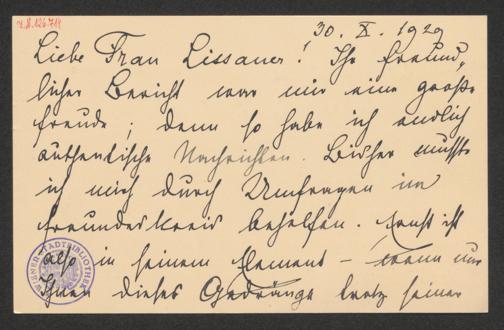 I.N. 126.714
30. X. 1929
Liebe Frau Lissauer! Ihr freund-
licher Bericht war mir eine große
Freude; denn so habe ich endlich
authentische Nachrichten. Bisher mußte
ich mich durch Umfragen im
Freundeskreis behelfen. Ernst ist
also in seinem Element – wenn nur
Ihnen dieses Gedränge trotz seiner
WIENER STADTBIBLIOTHEK